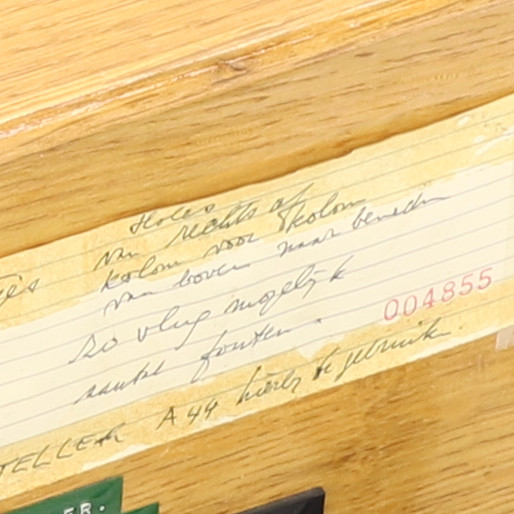 Holes
van rechts af
kolom voor kolom
van boven naar beneden
zo vlug mogelijk
fouten.
004855
TELLER A44 hierbij te gebruik.
ER.